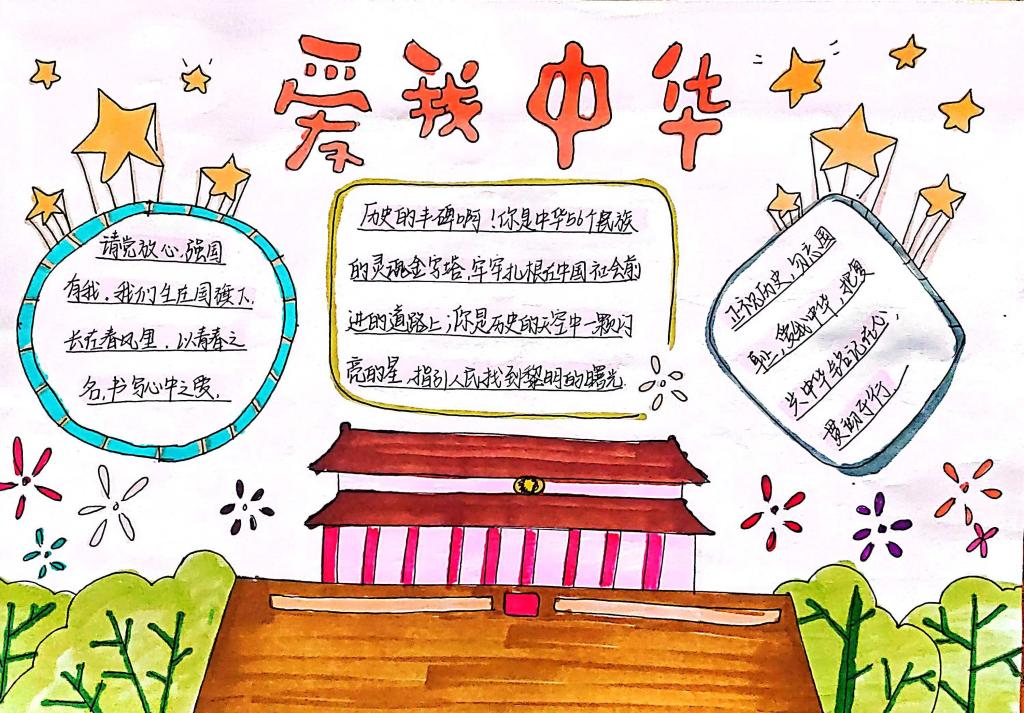 爱我中华
请党放心,强国
有我。我们生在国旗下,
长在春风里,以青春之
名,书写心中之爱。
历史的丰碑啊!你是中华56个民族
的灵魂金字塔,牢牢扎根在中国社会前
进的道路上;你是历史的天空中一颗闪
亮的星,指引人民找到黎明的曙光
正视历史,勿忘国
耻,爱我中华,把复
兴中华牢记在心,
贯彻于行